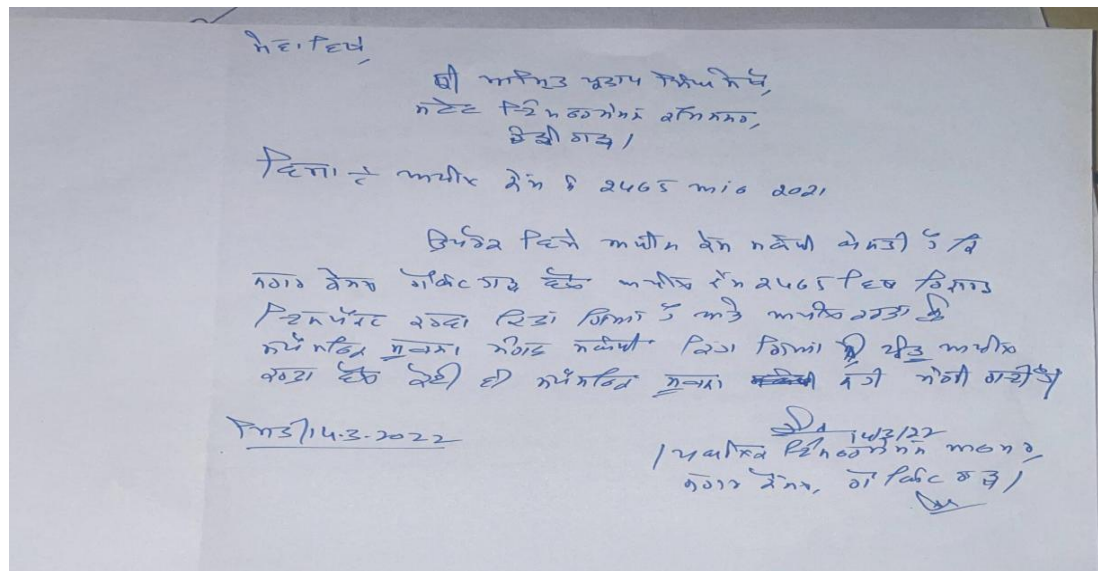 ਸੇਵਾ ਵਿਖੇ,
ਸ੍ਰੀ ਅਮ੍ਰਿਤ ਪ੍ਰਤਾਪ ਸਿੰਘ ਸੇਖੋਂ,
ਸਟੇਟ ਇੰਨਫਰਮੇਸ਼ਨ ਕਮਿਸ਼ਨਰ,
ਚੰਡੀਗੜ੍ਹ।
ਵਿਸ਼ਾ :- ਅਪੀਲ ਕੇਸ ਨੰ 2465 ਆਫ 2021
ਉਪਰੋਕਤ ਵਿਸ਼ੇ ਅਪੀਲ ਕੇਸ ਸਬੰਧੀ ਬੇਨਤੀ ਹੈ ਕਿ
ਨਗਰ ਕੌਂਸਲ ਗੋਬਿੰਦਗੜ੍ਹ ਵੱਲੋਂ ਅਪੀਲ ਕੇਸ 2465 ਵਿਚ ਰਿਕਾਰਡ
ਇੰਨਸਪੈਕਟ ਕਰਵਾ ਦਿਤਾ ਗਿਆ ਹੈ ਅਤੇ ਅਪੀਲ ਕਰਤਾ ਨੂੰ
ਸਪੈਸਫਿਕ ਸੂਚਨਾ ਮੰਗਣ ਸਬੰਧੀ ਕਿਹਾ ਗਿਆ ਸੀ ਪ੍ਰੰਤੂ ਅਪੀਲ
ਕਰਤਾ ਵੱਲੋਂ ਕੋਈ ਵੀ ਸਪੈਸਫਿਕ ਸੂਚਨਾ ਨਹੀ ਮੰਗੀ ਗਈ ਹੈ।
ਮਿਤੀ 14.3.2022
14/3/22
ਪਬਲਿਕ ਇੰਨਫਰਮੇਸ਼ਨ ਅਫਸਰ,
ਨਗਰ ਕੌਂਸਲ, ਗੋਬਿੰਦਗੜ੍ਹ।